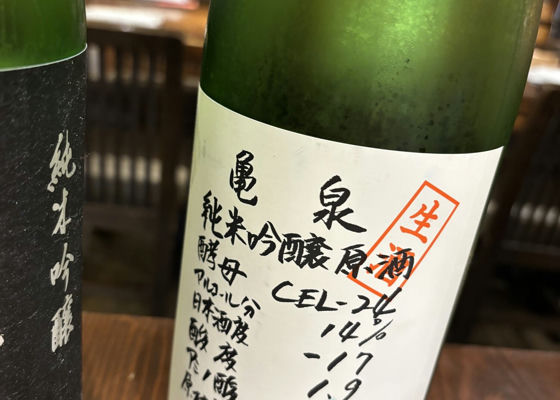 純米吟醸
亀泉
生酒
純米吟醸原酒
酵母 CEL-24
アルコール分 14%
日本酒度 -17
酸度 1.9
アミノ酸
原